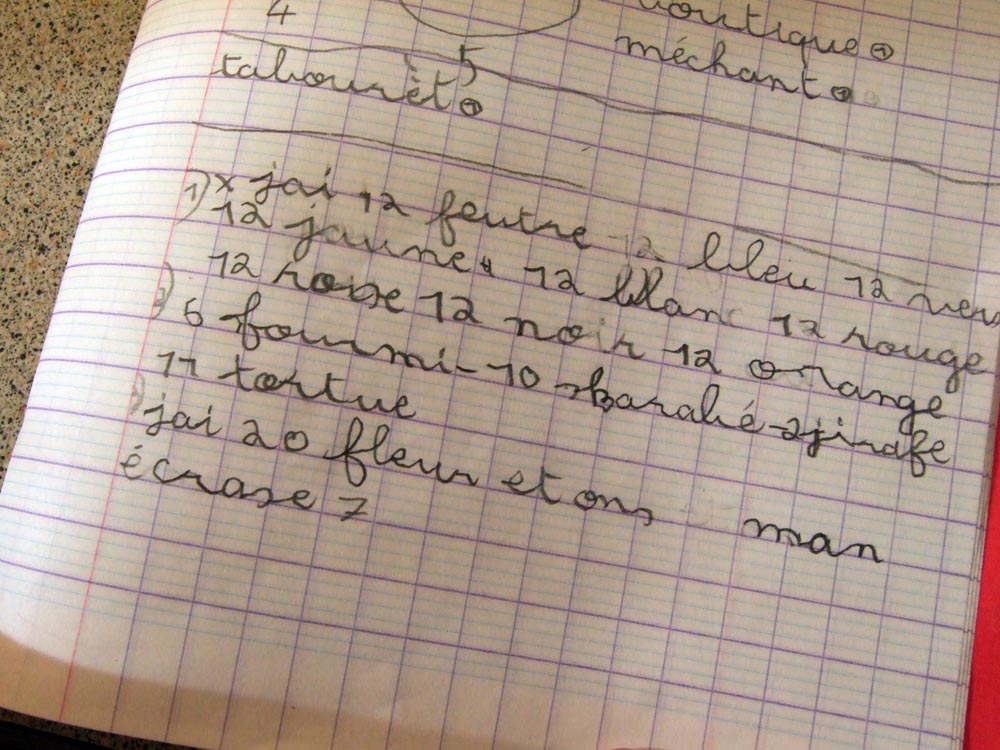 4
5
boutique
méchant
tabourèt
1) x jai 12 feutre 12 bleu 12 ver
12 jaune 12 blanc 12 rouge
12 rose 12 noir 12 orange
2) 6 fourmi - 10 - 2 jirafe
11 tortue
3) jai 20 fleur et on man
écrase 7